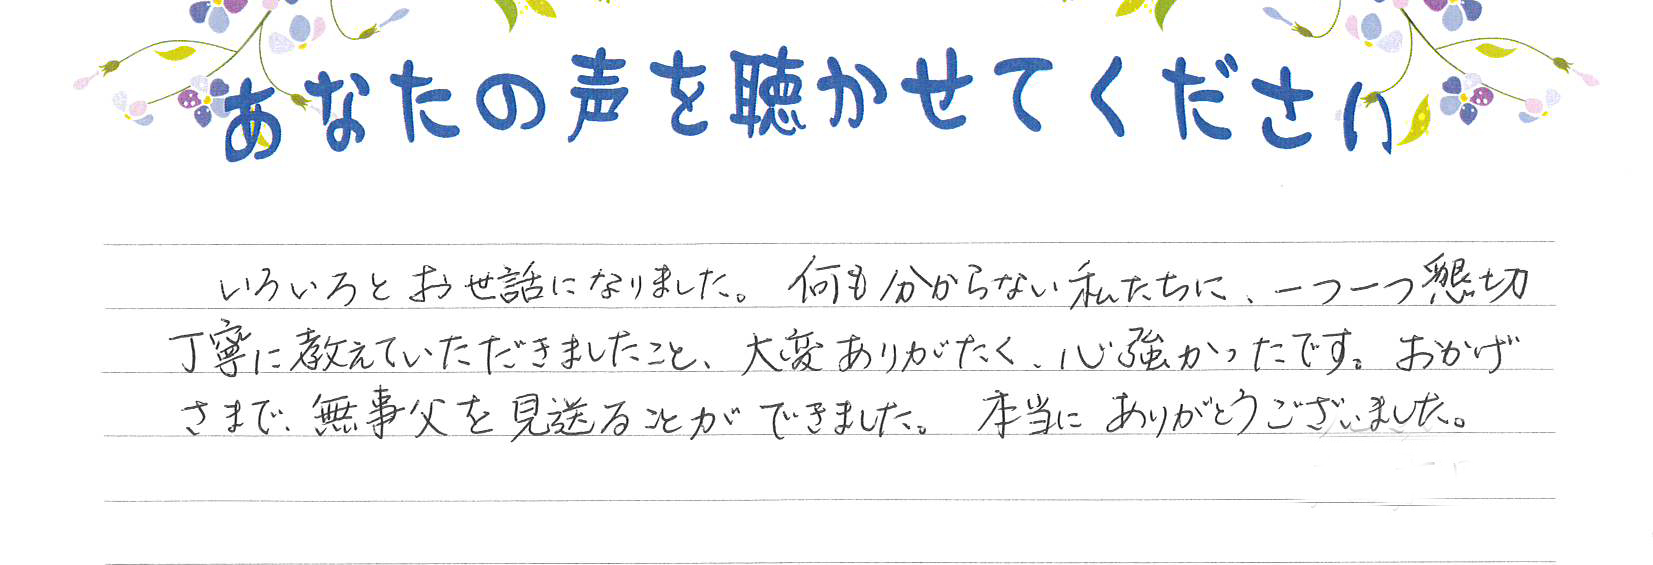 あなたの声を聴かせてください
いろいろとお世話になりました。 何も分からない私たちに、一つ一つ懇切
丁寧に教えていただきましたこと、大変ありがたく、心強かったです。おかげ
さまで、無事父を見送ることができました。 本当にありがとうございました。